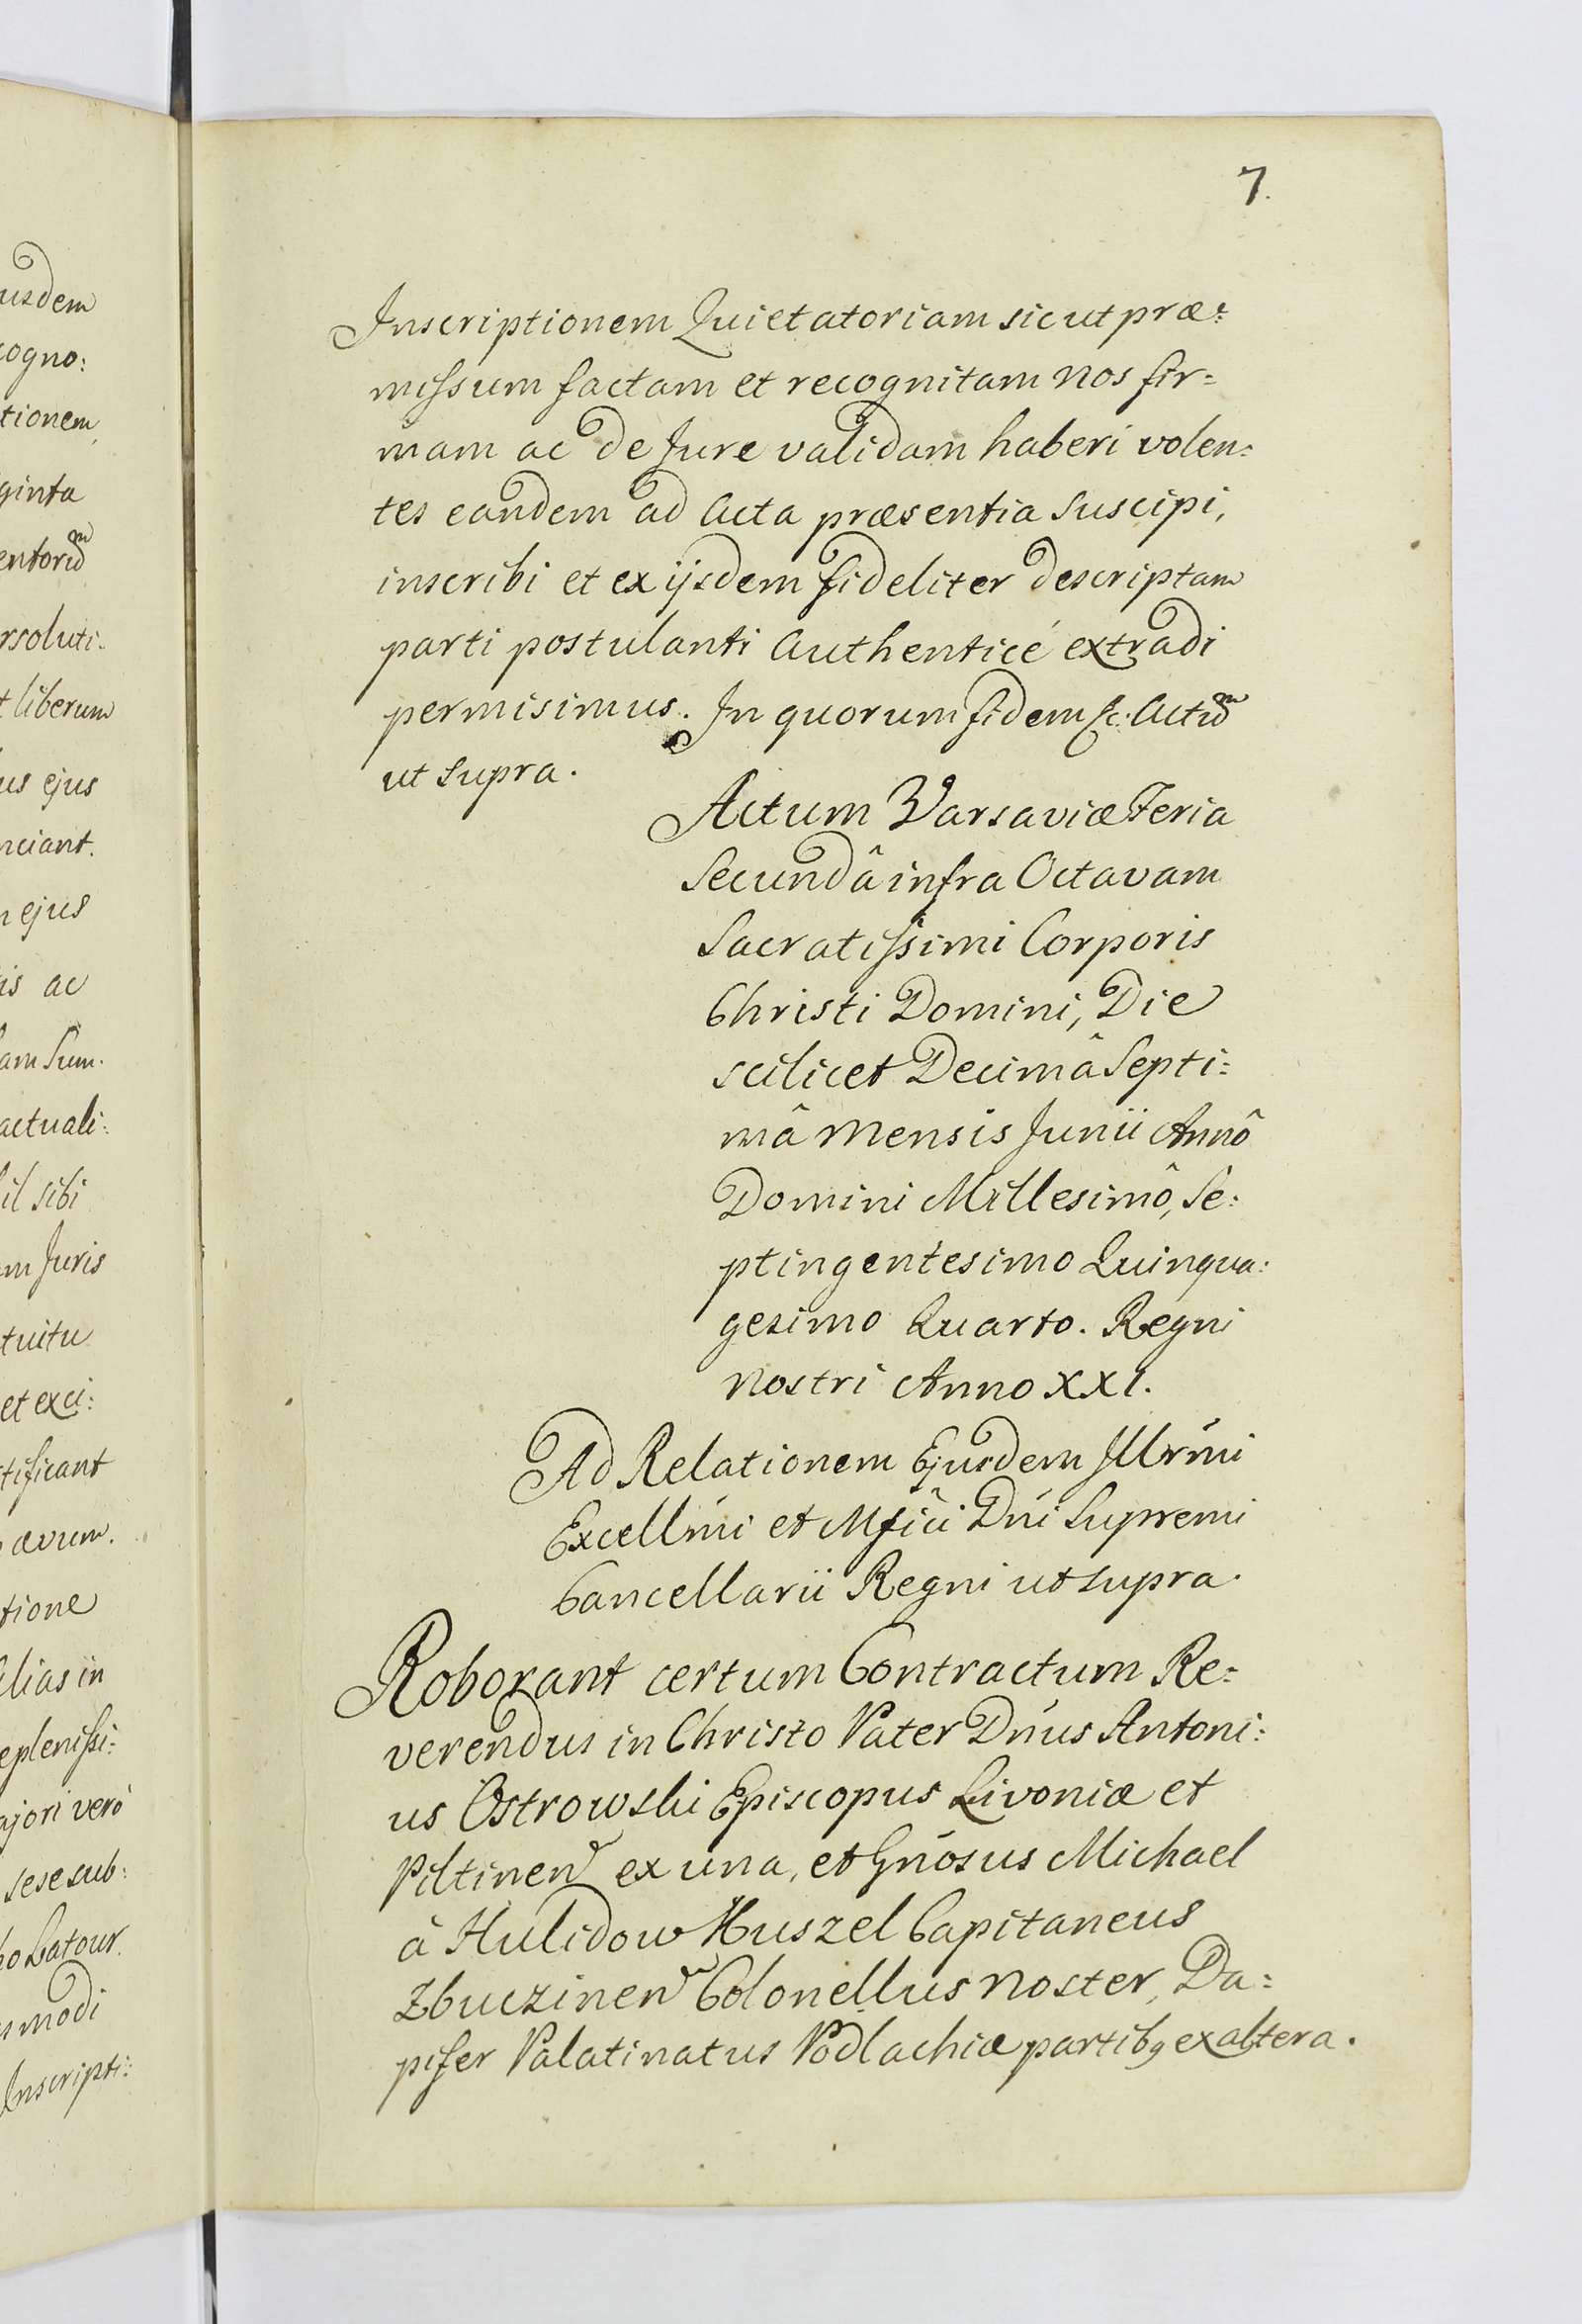 usdem
cogno:
tionem,
ginta
entorum
rsoluti:
t liberum
us ejus
nciant.
n ejus
is ac
am Sum:
actuali:
il sibi
m Juris
tuitu
et exci:
tificant
ævum.
tione
alias in
eplenissi:
ajori verò
sese sub:
ho Latour.
smodi
Inscripti:
7.
Inscriptionem Quietatoriam sicut præ:
missum factam et recognitam Nos fir=
mam ac de Jure validam haberi volen:
tes eandem ad Acta præsentia Suscipi,
inscribi et ex ijsdem fideliter descriptam
parti postulanti Authenticé extradi
permisimus. In quorum fidem &c: Actum
ut Supra.
Actum Varsaviæ Feria
Secundâ infra Octavam
Sacratissimi Corporis
Christi Domini, Die
scilicet Decimâ Septi:
mâ Mensis Junii Annô
Domini Millesimô, Se:
ptingentesimo Quinqua:
gesimo Quarto. Regni
Nostri Anno XXI.
Ad Relationem Ejusdem Illrmi
Excellmi et Mfici Dni Supremi
Cancellarii Regni ut supra.
Roborant certum Contractum Re=
verendus in Christo Pater Dnus Antoni:
us Ostrowski Episcopus Livoniæ et
Piltinen ex una, et Gnosus Michael
à Hulidow Huszel Capitaneus
Zbuczinen Colonellus Noster, Da=
pifer Palatinatus Podlachiæ partibq ex altera.